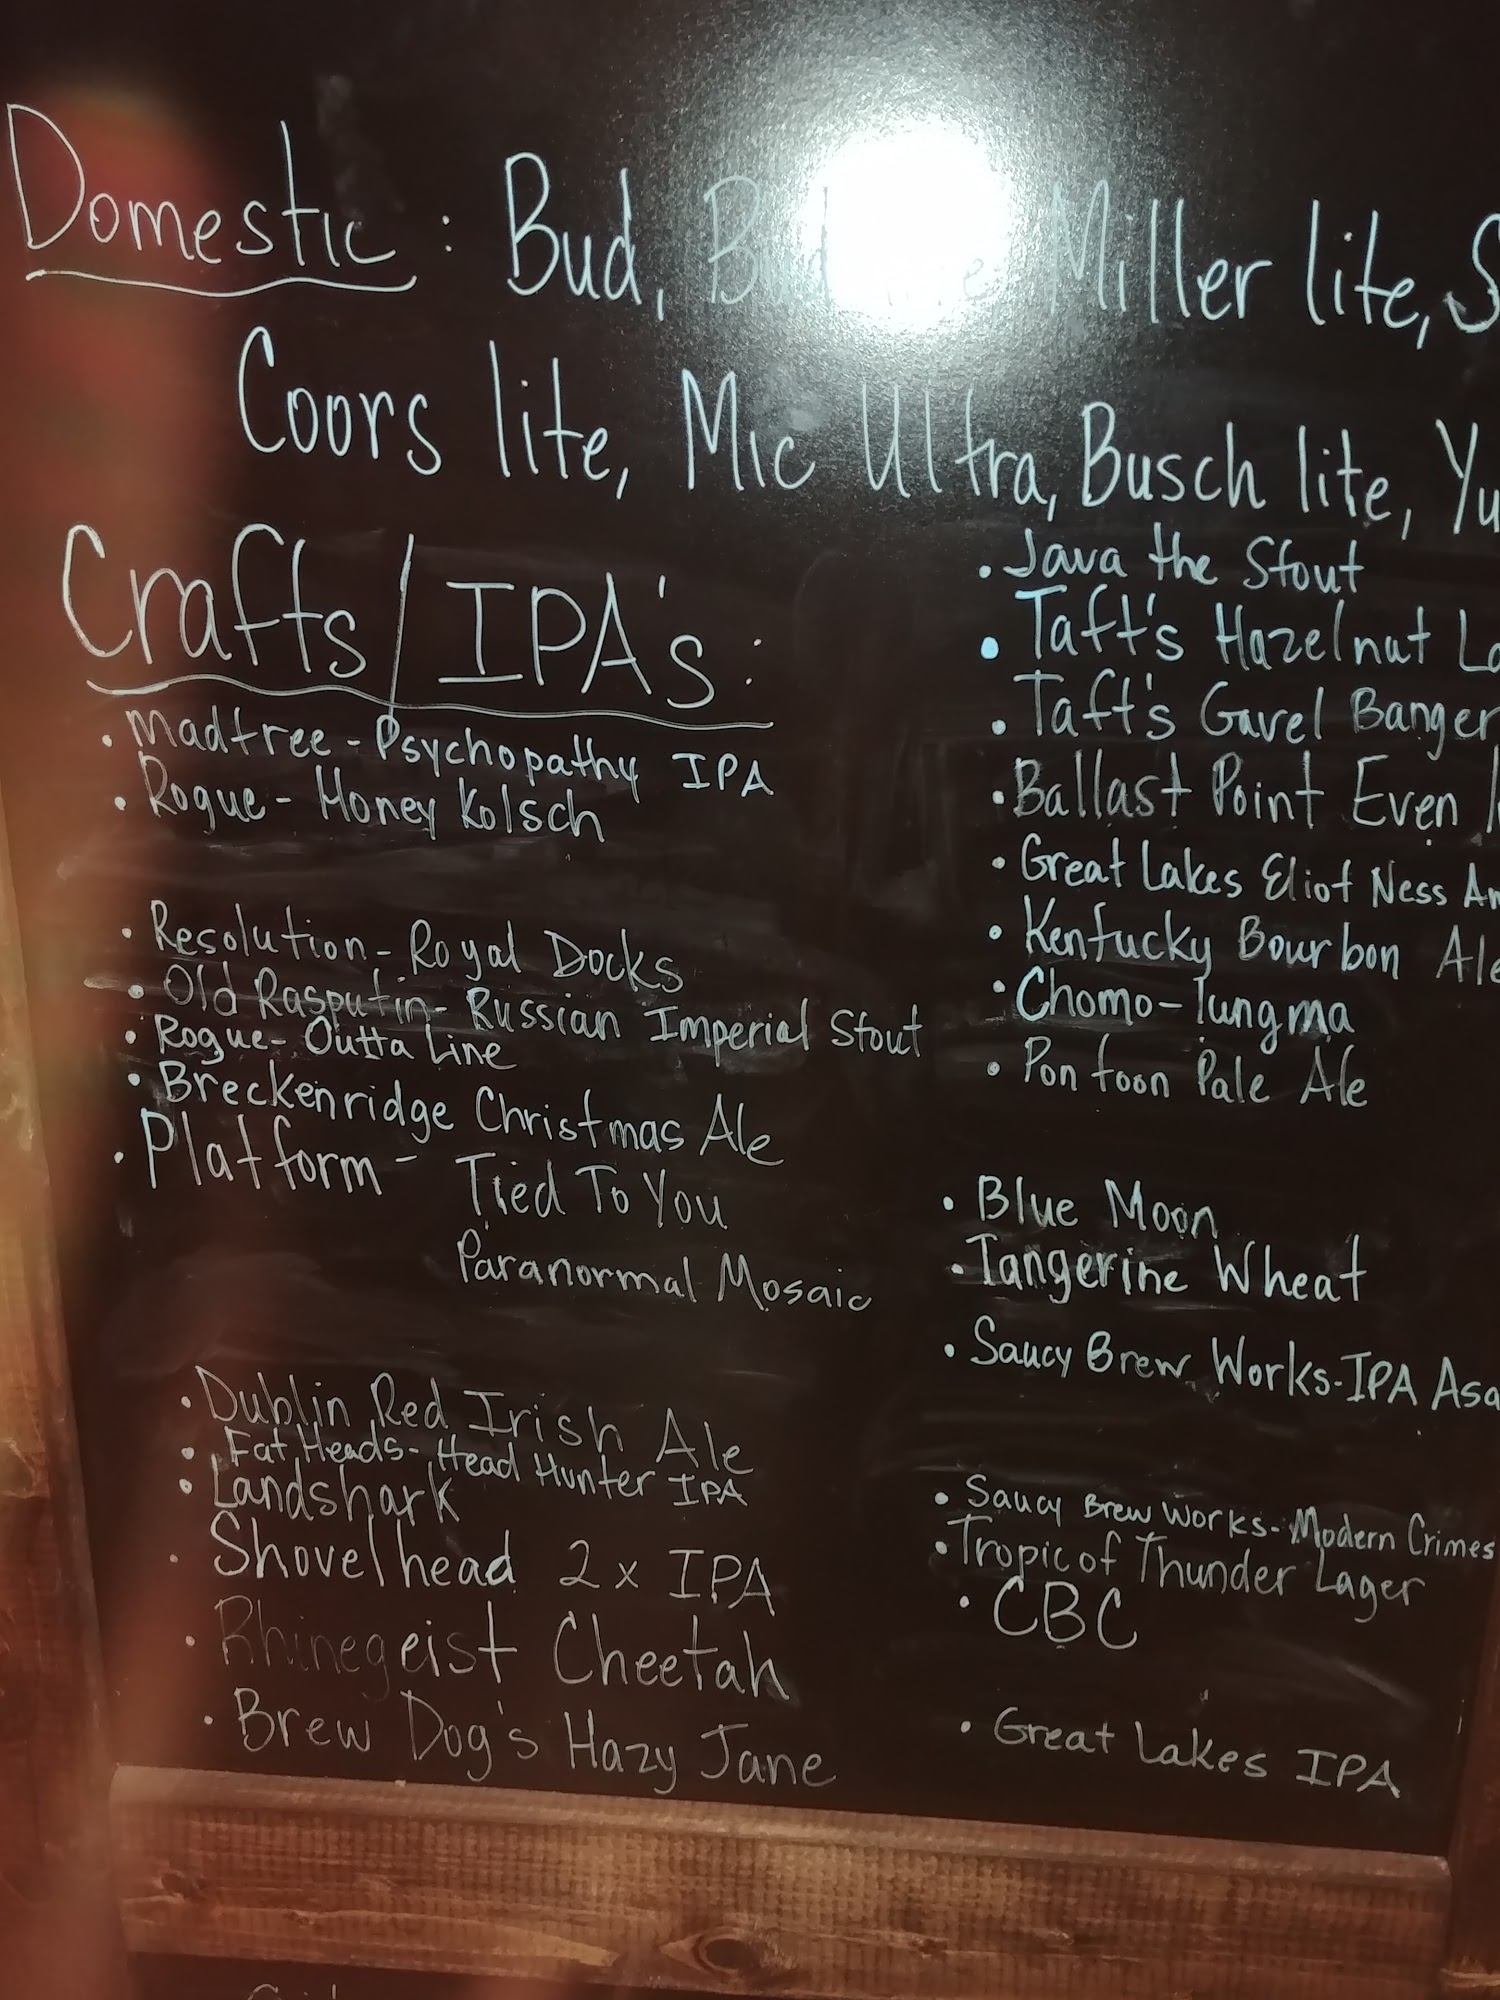 Domestic: Bud, Miller lite,
Coors lite, Mic Ultra, Busch lite,
Crafts/IPA's:
• Madtree - Psychopathy IPA
• Rogue - Honey Kolsch
• Resolution - Royal Docks
• Old Rasputin - Russian Imperial Stout
• Rogue - Outta Line
• Breckenridge Christmas Ale
• Platform - Tied To You
Paranormal Mosaic
• Dublin Red Irish Ale
• Fat Heads - Head Hunter IPA
• Landshark
• Shovelhead 2x IPA
• Rhinegeist Cheetah
• Brew Dog's Hazy Jane
• Java the Stout
• Taft's Hazelnut
• Taft's Gavel Banger
• Ballast Point Even
• Great Lakes Eliot Ness
• Kentucky Bourbon Ale
• Chomo-lungma
• Pontoon Pale Ale
• Blue Moon
• Tangerine Wheat
• Saucy Brew Works - IPA
• Saucy Brew Works - Modern Crimes
• Tropic of Thunder Lager
• CBC
• Great Lakes IPA